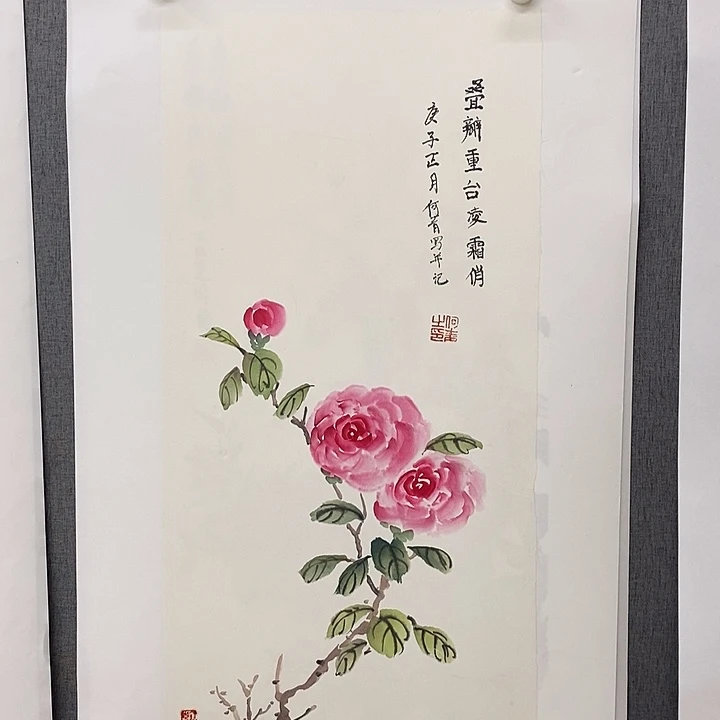 叠瓣重台凌霜俏
庚子正月何首写并记